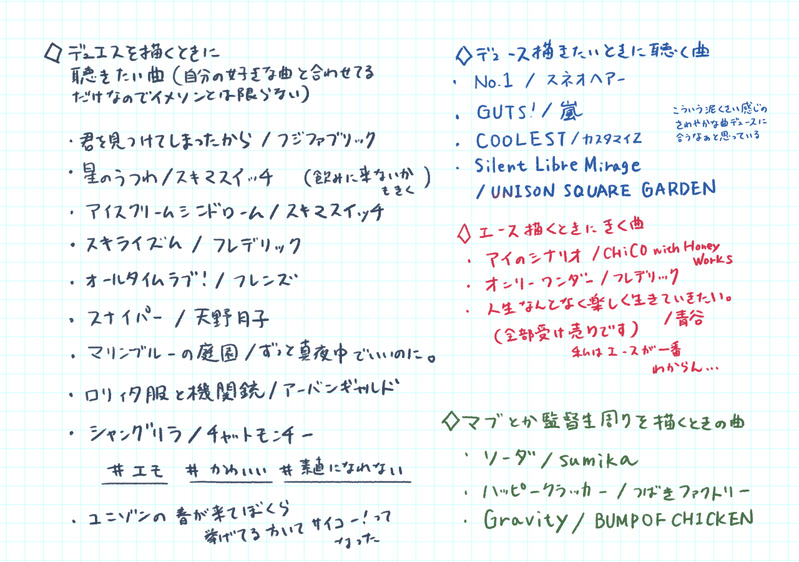 ◇デュエスを描くときに
聴きたい曲(自分の好きな曲と合わせてる
だけなのでイメソンとは限らない)
・君を見つけてしまったから/フジファブリック
・星のうつわ/スキマスイッチ (飲みに来ないか
もきく)
・アイスクリームシンドローム/スキマスイッチ
・スキライズム/フレデリック
・オールタイムラブ!/フレンズ
・スナイパー/天野月子
・マリンブルーの庭園/ずっと真夜中でいいのに。
・ロリィタ服と機関銃/アーバンギャルド
・シャングリラ/チャットモンチー
#エモ #かわいい #素直になれない
・ユニゾンの春が来てぼくら
挙げてる方いてサイコー!って
なった
◇デュース描きたいときに聴く曲
・No.1/スネオヘアー
・GUTS!/嵐
・COOLEST/カスタマイZ
こういう泥くさい感じの
さわやかな曲デュースに
合うなぁと思っている
・Silent Libre Mirage
/UNISON SQUARE GARDEN
◇エース描くときにきく曲
・アイのシナリオ/CHiCO with Honey
Works
・オンリーワンダー/フレデリック
・人生なんとなく楽しく生きていきたい。
/青谷
(全部受け売りです)
私はエースが一番
わからん…
◇マブとか監督生周りを描くときの曲
・ソーダ/sumika
・ハッピークラッカー/つばきファクトリー
・Gravity/BUMP OF CHICKEN